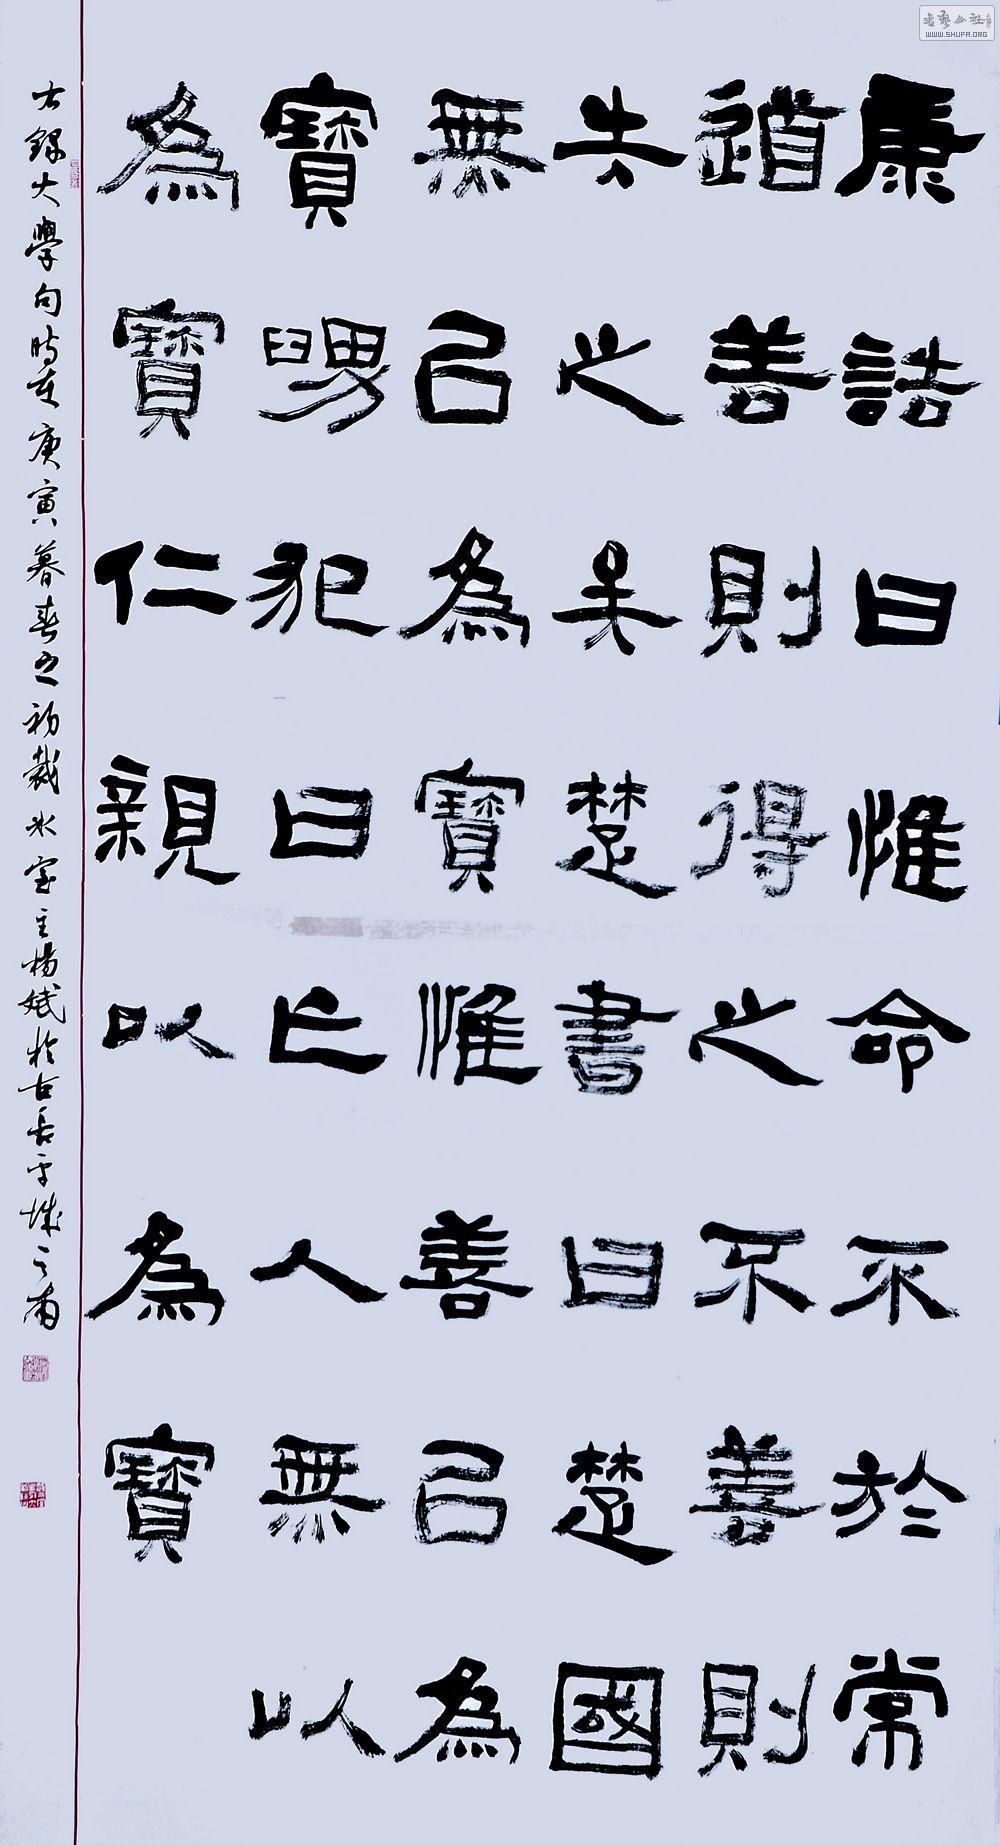 康誥曰惟命不於常
道善則得之不善則
失之矣楚書曰楚國
無㠯為寶惟善㠯為
寶舅犯曰亡人無以
為寶仁親以為寶
右錄大學句時在庚寅暮春之初裁室主楊斌於古長平城之南
書藝公社
WWW.SHUFA.ORG